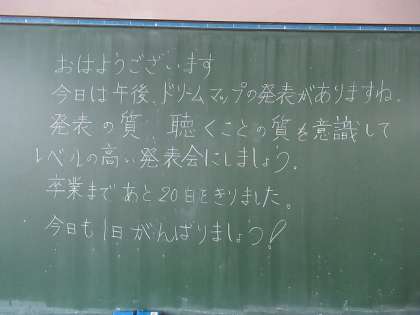 おはようございます
今日は午後、ドリームマップの発表がありますね。
発表の質、聴くことの質を意識して
レベルの高い発表会にしましょう。
卒業まであと20日をきりました。
今日も1日がんばりましょう!